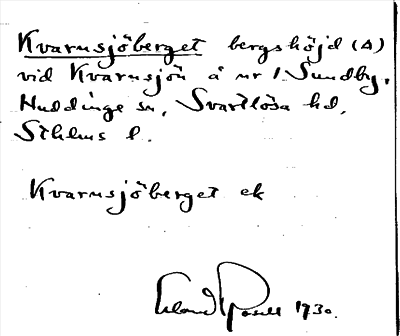 Kvarnsjöberget bergshöjd (A)
vid Kvarnsjön å nr 1 Sundby,
Huddinge sn, Svartlösa hd,
Sthlms l.
Kvarnsjöberget ek
Erland Rosell 1930.